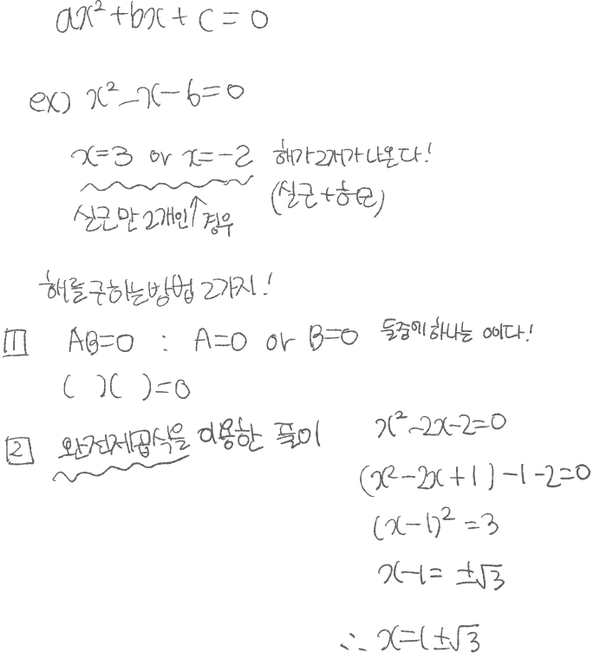 ax² + bx + c = 0
ex) x² - x - 6 = 0
x = 3 or x = -2 해가 2개가 나온다!
(실근 + 허근)
실근만 2개인 ↑ 경우
해를 구하는 방법 2가지!
1 AB = 0 : A = 0 or B = 0 둘중에 하나는 0이다!
( )( ) = 0
2 완전제곱식을 이용한 풀이
x² - 2x - 2 = 0
(x² - 2x + 1) - 1 - 2 = 0
(x - 1)² = 3
x - 1 = ±√3
∴ x = 1 ± √3